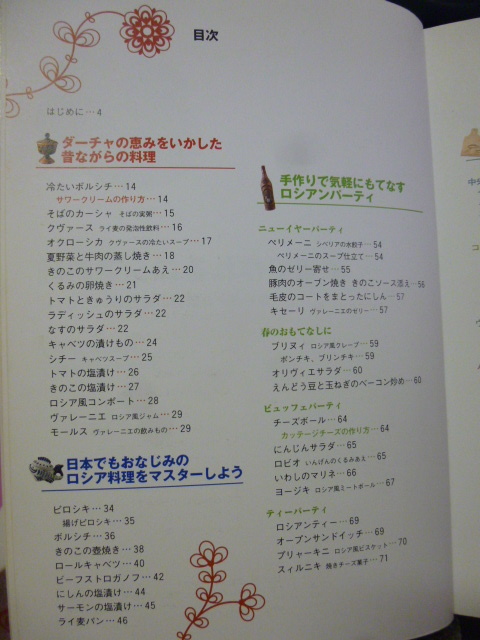 目次
はじめに…4
ダーチャの恵みをいかした
昔ながらの料理
冷たいボルシチ…14
サワークリームの作り方…14
そばのカーシャ そばの実粥…15
クヴァース ライ麦の発泡性飲料…16
オクローシカ クヴァースの冷たいスープ…17
夏野菜と牛肉の蒸し焼き…18
きのこのサワークリームあえ…20
くるみの卵焼き…21
トマトときゅうりのサラダ…22
ラディッシュのサラダ…22
なすのサラダ…22
キャベツの漬けもの…24
シチー キャベツスープ…25
トマトの塩漬け…26
きのこの塩漬け…27
ロシア風コンポート…28
ヴァレーニエ ロシア風ジャム…29
モールス ヴァレーニエの飲みもの…29
日本でもおなじみの
ロシア料理をマスターしよう
ピロシキ…34
揚げピロシキ…35
ボルシチ…36
きのこの壺焼き…38
ロールキャベツ…40
ビーフストロガノフ…42
にしんの塩漬け…44
サーモンの塩漬け…45
ライ麦パン…46
手作りで気軽にもてなす
ロシアンパーティ
ニューイヤーパーティ
ペリメーニ シベリアの水餃子…54
ペリメーニのスープ仕立て…54
魚のゼリー寄せ…55
豚肉のオーブン焼き きのこソース添え…56
毛皮のコートをまとったにしん…57
キセーリ ヴァレーニエのゼリー…57
春のおもてなしに
ブリヌィ ロシア風クレープ…59
ポンチキ、ブリンチキ…59
オリヴィエサラダ…60
えんどう豆と玉ねぎのベーコン炒め…60
ビュッフェパーティ
チーズボール…64
カッテージチーズの作り方…64
にんじんサラダ…65
ロビオ いんげんのくるみあえ…65
いわしのマリネ…66
ヨージキ ロシア風ミートボール…67
ティーパーティ
ロシアンティー…69
オープンサンドイッチ…69
プリャーキニ ロシア風ビスケット…70
スィルニキ 焼きチーズ菓子…71